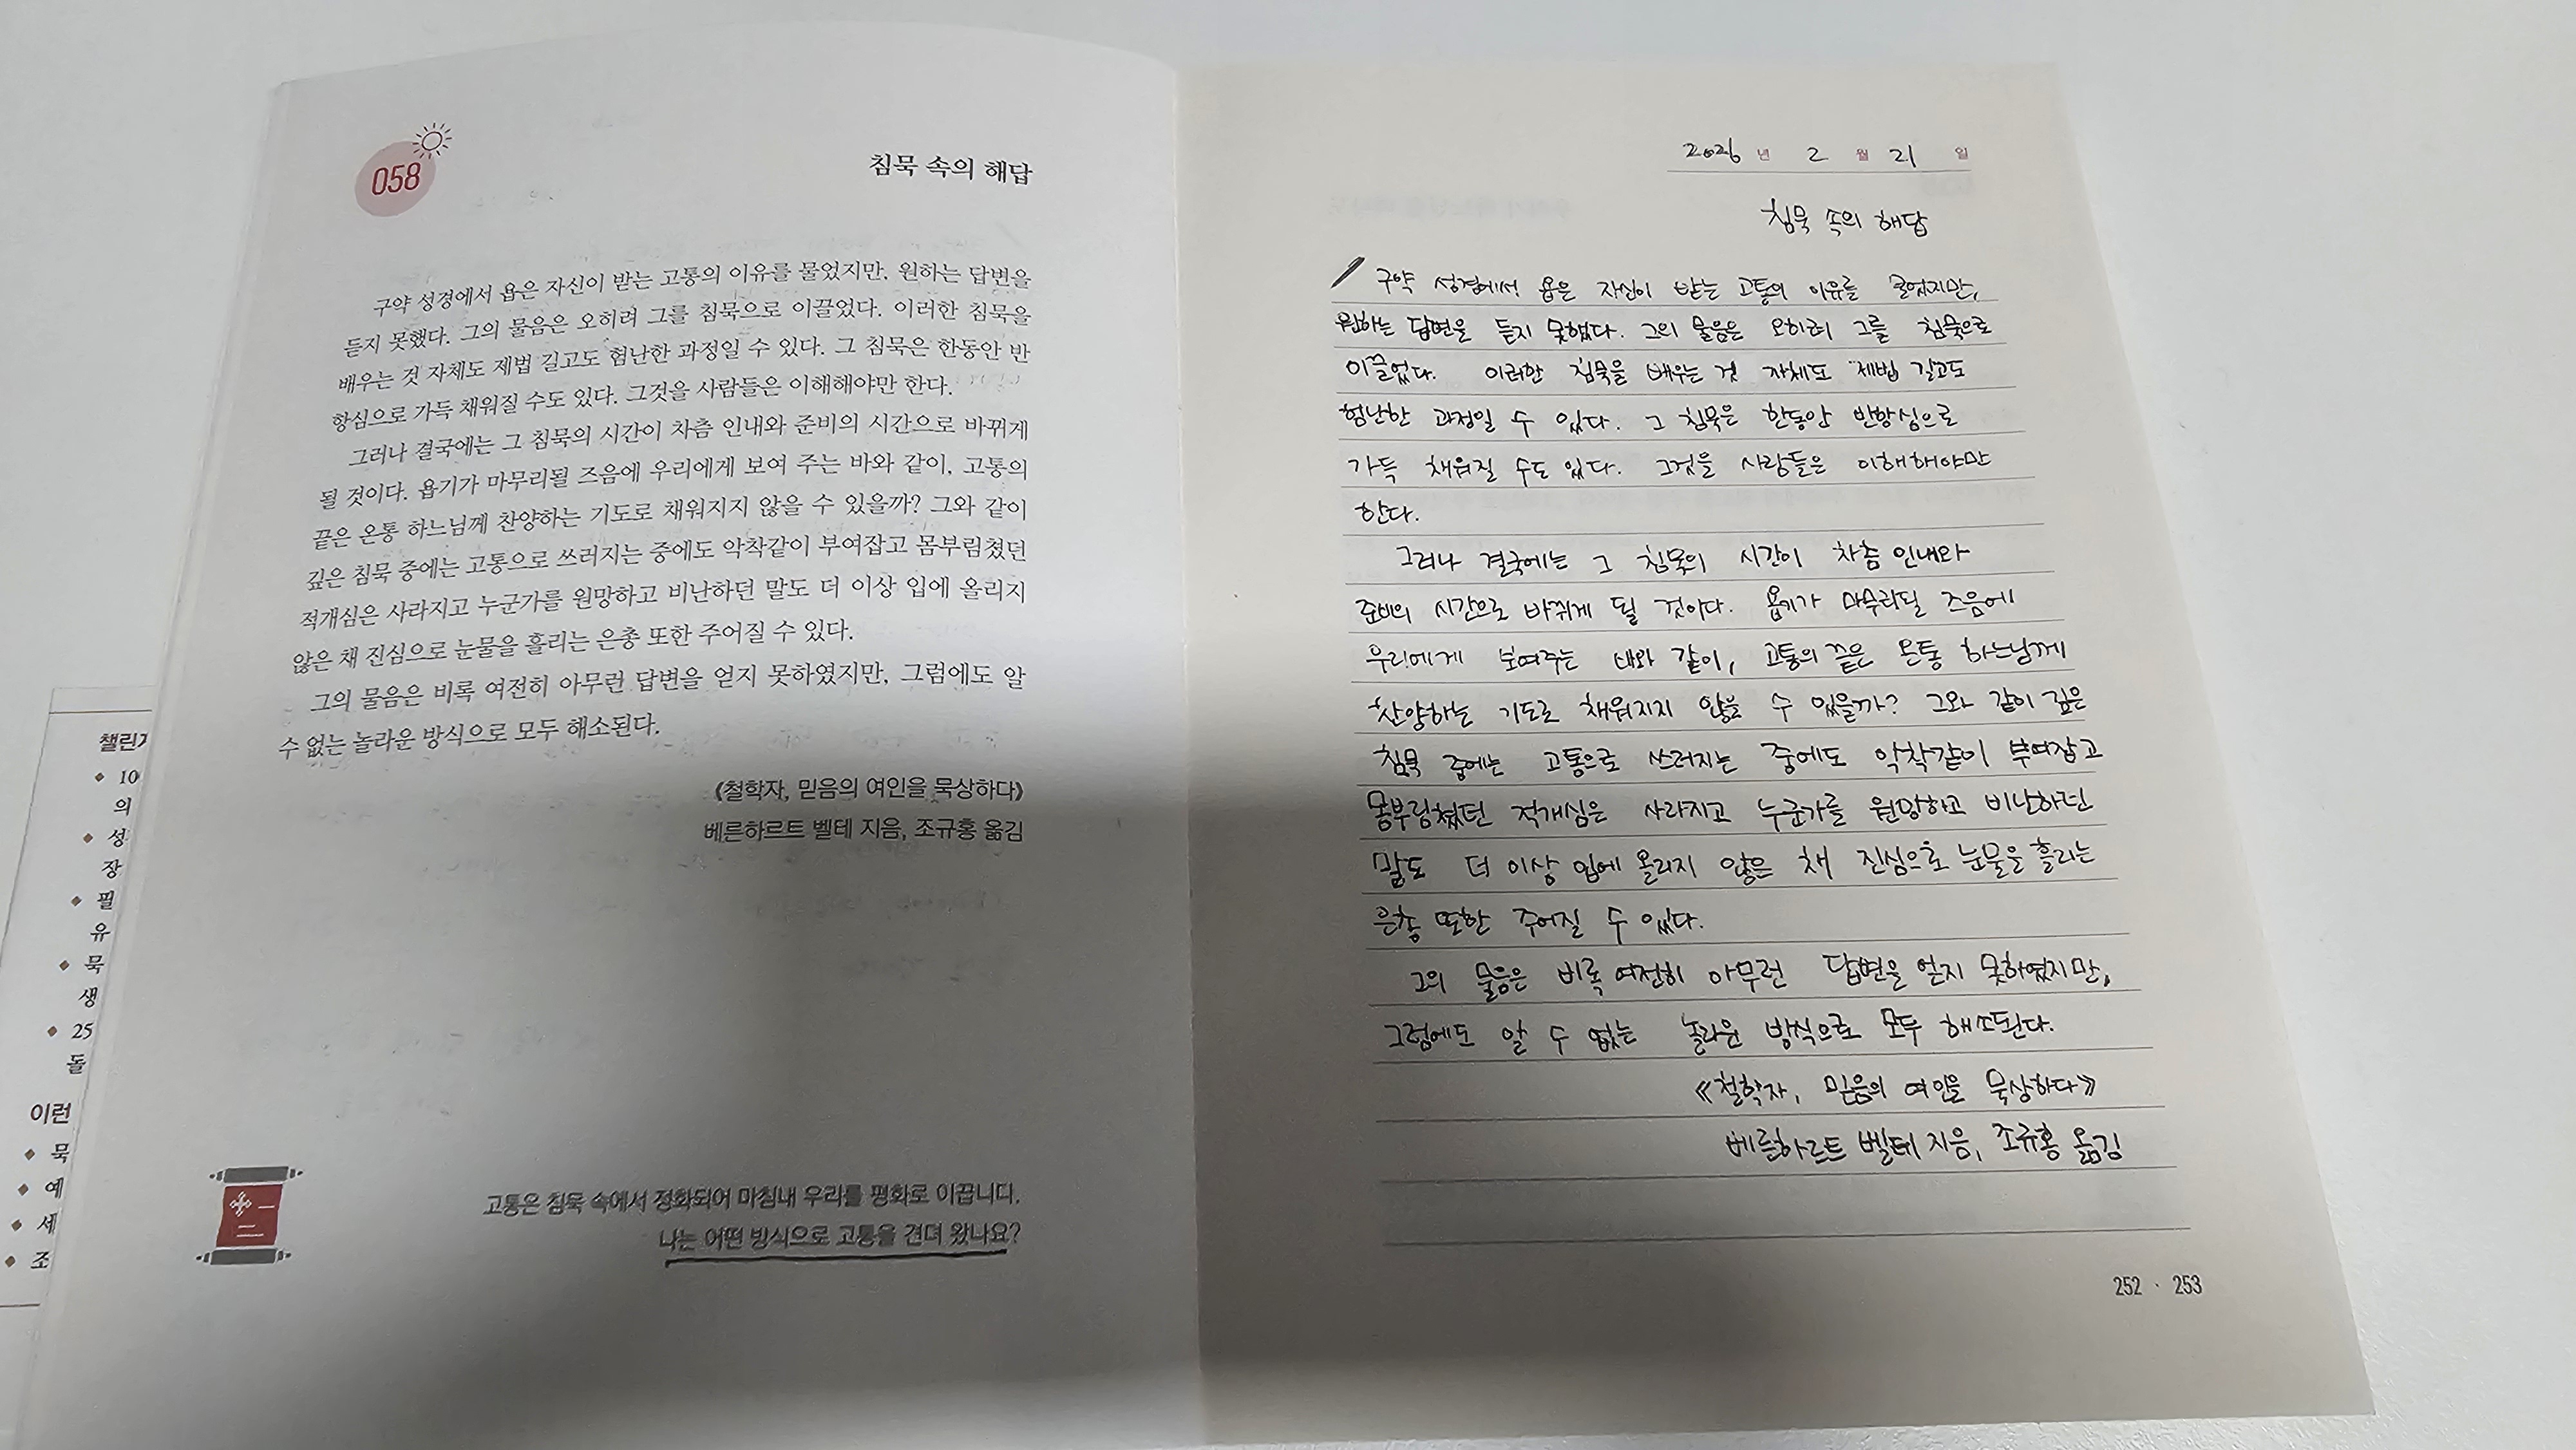 058
침묵 속의 해답
구약 성경에서 욥은 자신이 받는 고통의 이유를 물었지만, 원하는 답변을
듣지 못했다. 그의 물음은 오히려 그를 침묵으로 이끌었다. 이러한 침묵을
배우는 것 자체도 제법 길고도 험난한 과정일 수 있다. 그 침묵은 한동안 반
항심으로 가득 채워질 수도 있다. 그것을 사람들은 이해해야만 한다.
그러나 결국에는 그 침묵의 시간이 차츰 인내와 준비의 시간으로 바뀌게
될 것이다. 욥기가 마무리될 즈음에 우리에게 보여 주는 바와 같이, 고통의
끝은 온통 하느님께 찬양하는 기도로 채워지지 않을 수 있을까? 그와 같이
깊은 침묵 중에는 고통으로 쓰러지는 중에도 악착같이 부여잡고 몸부림쳤던
적개심은 사라지고 누군가를 원망하고 비난하던 말도 더 이상 입에 올리지
않은 채 진심으로 눈물을 흘리는 은총 또한 주어질 수 있다.
그의 물음은 비록 여전히 아무런 답변을 얻지 못하였지만, 그럼에도 알
수 없는 놀라운 방식으로 모두 해소된다.
《철학자, 믿음의 여인을 묵상하다》
베른하르트 벨테 지음, 조규홍 옮김
고통은 침묵 속에서 정화되어 마침내 우리를 평화로 이끕니다.
나는 어떤 방식으로 고통을 견뎌 왔나요?
챌린지
10
의
성
장
필
유
묵
생
25
돌
이런
묵
예
세
조
2026 년 2 월 21 일
침묵 속의 해답
구약 성경에서 욥은 자신이 받는 고통의 이유를 물었지만,
원하는 답변을 듣지 못했다. 그의 물음은 오히려 그를 침묵으로
이끌었다. 이러한 침묵을 배우는 것 자체도 제법 길고도
험난한 과정일 수 있다. 그 침묵은 한동안 반항심으로
가득 채워질 수도 있다. 그것을 사람들은 이해해야만
한다.
그러나 결국에는 그 침묵의 시간이 차츰 인내와
준비의 시간으로 바뀌게 될 것이다. 욥기가 마무리될 즈음에
우리에게 보여주는 바와 같이, 고통의 끝은 온통 하느님께
찬양하는 기도로 채워지지 않을 수 있을까? 그와 같이 깊은
침묵 중에는 고통으로 쓰러지는 중에도 악착같이 부여잡고
몸부림쳤던 적개심은 사라지고 누군가를 원망하고 비난하던
말도 더 이상 입에 올리지 않은 채 진심으로 눈물을 흘리는
은총 또한 주어질 수 있다.
그의 물음은 비록 여전히 아무런 답변을 얻지 못하였지만,
그럼에도 알 수 없는 놀라운 방식으로 모두 해소된다.
《철학자, 믿음의 여인을 묵상하다》
베른하르트 벨테 지음, 조규홍 옮김
252 · 253